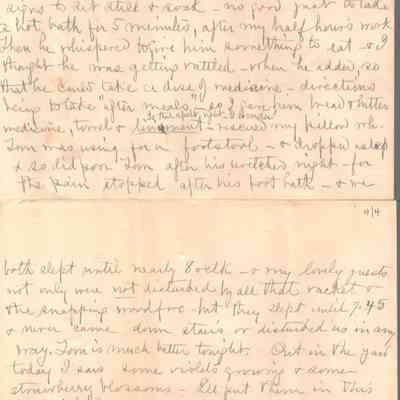 signs to sit still & soak - no good just to take
a hot bath for 5 minutes, after my half hour's work
Then he whispered to give him something to eat - & I
thought he was getting rattled - when he added, so
that he could take a dose of medicine - directions
being to take "after meals" - so I gave him bread & butter
medicine, towel & liniment - rescued my pillow wh.
Tom was using for a footstool - & dropped asleep
& so did poor Tom after his wretched night - for
the pain stopped after his foot bath - & we
4/4
both slept until nearly 8 o'clk - & my lovely guests
not only were not disturbed by all that racket &
the snapping woodfire - but they slept until 7.45
& never came down stairs or disturbed us in any
way. Tom is much better tonight. Out in the yard
today I saw some violets growing & some
strawberry blossoms - I'll put them in this